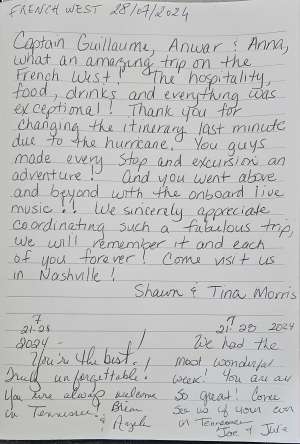 FRENCH WEST 28/07/2024
Captain Guillaume, Anwar & Anna,
what an amazing trip on the
French West! The hospitality,
food, drinks and everything was
exceptional! Thank you for
changing the itinerary last minute
due to the hurricane. You guys
made every stop and excursion an
adventure! And you went above
and beyond with the onboard live
music!! We sincerely appreciate
coordinating such a fabulous trip,
we will remember it and each
of you forever! Come visit us
in Nashville!
Shawn & Tina Morris
7
21-28
2024 -
You're the best!
Truly unforgettable!
You are always welcome
in Tennessee! Brian
&
7
21-28 2024
We had the
most wonderful
week! You are all
so great! Come
see us if your ever
in Tennessee
Joe & Julie